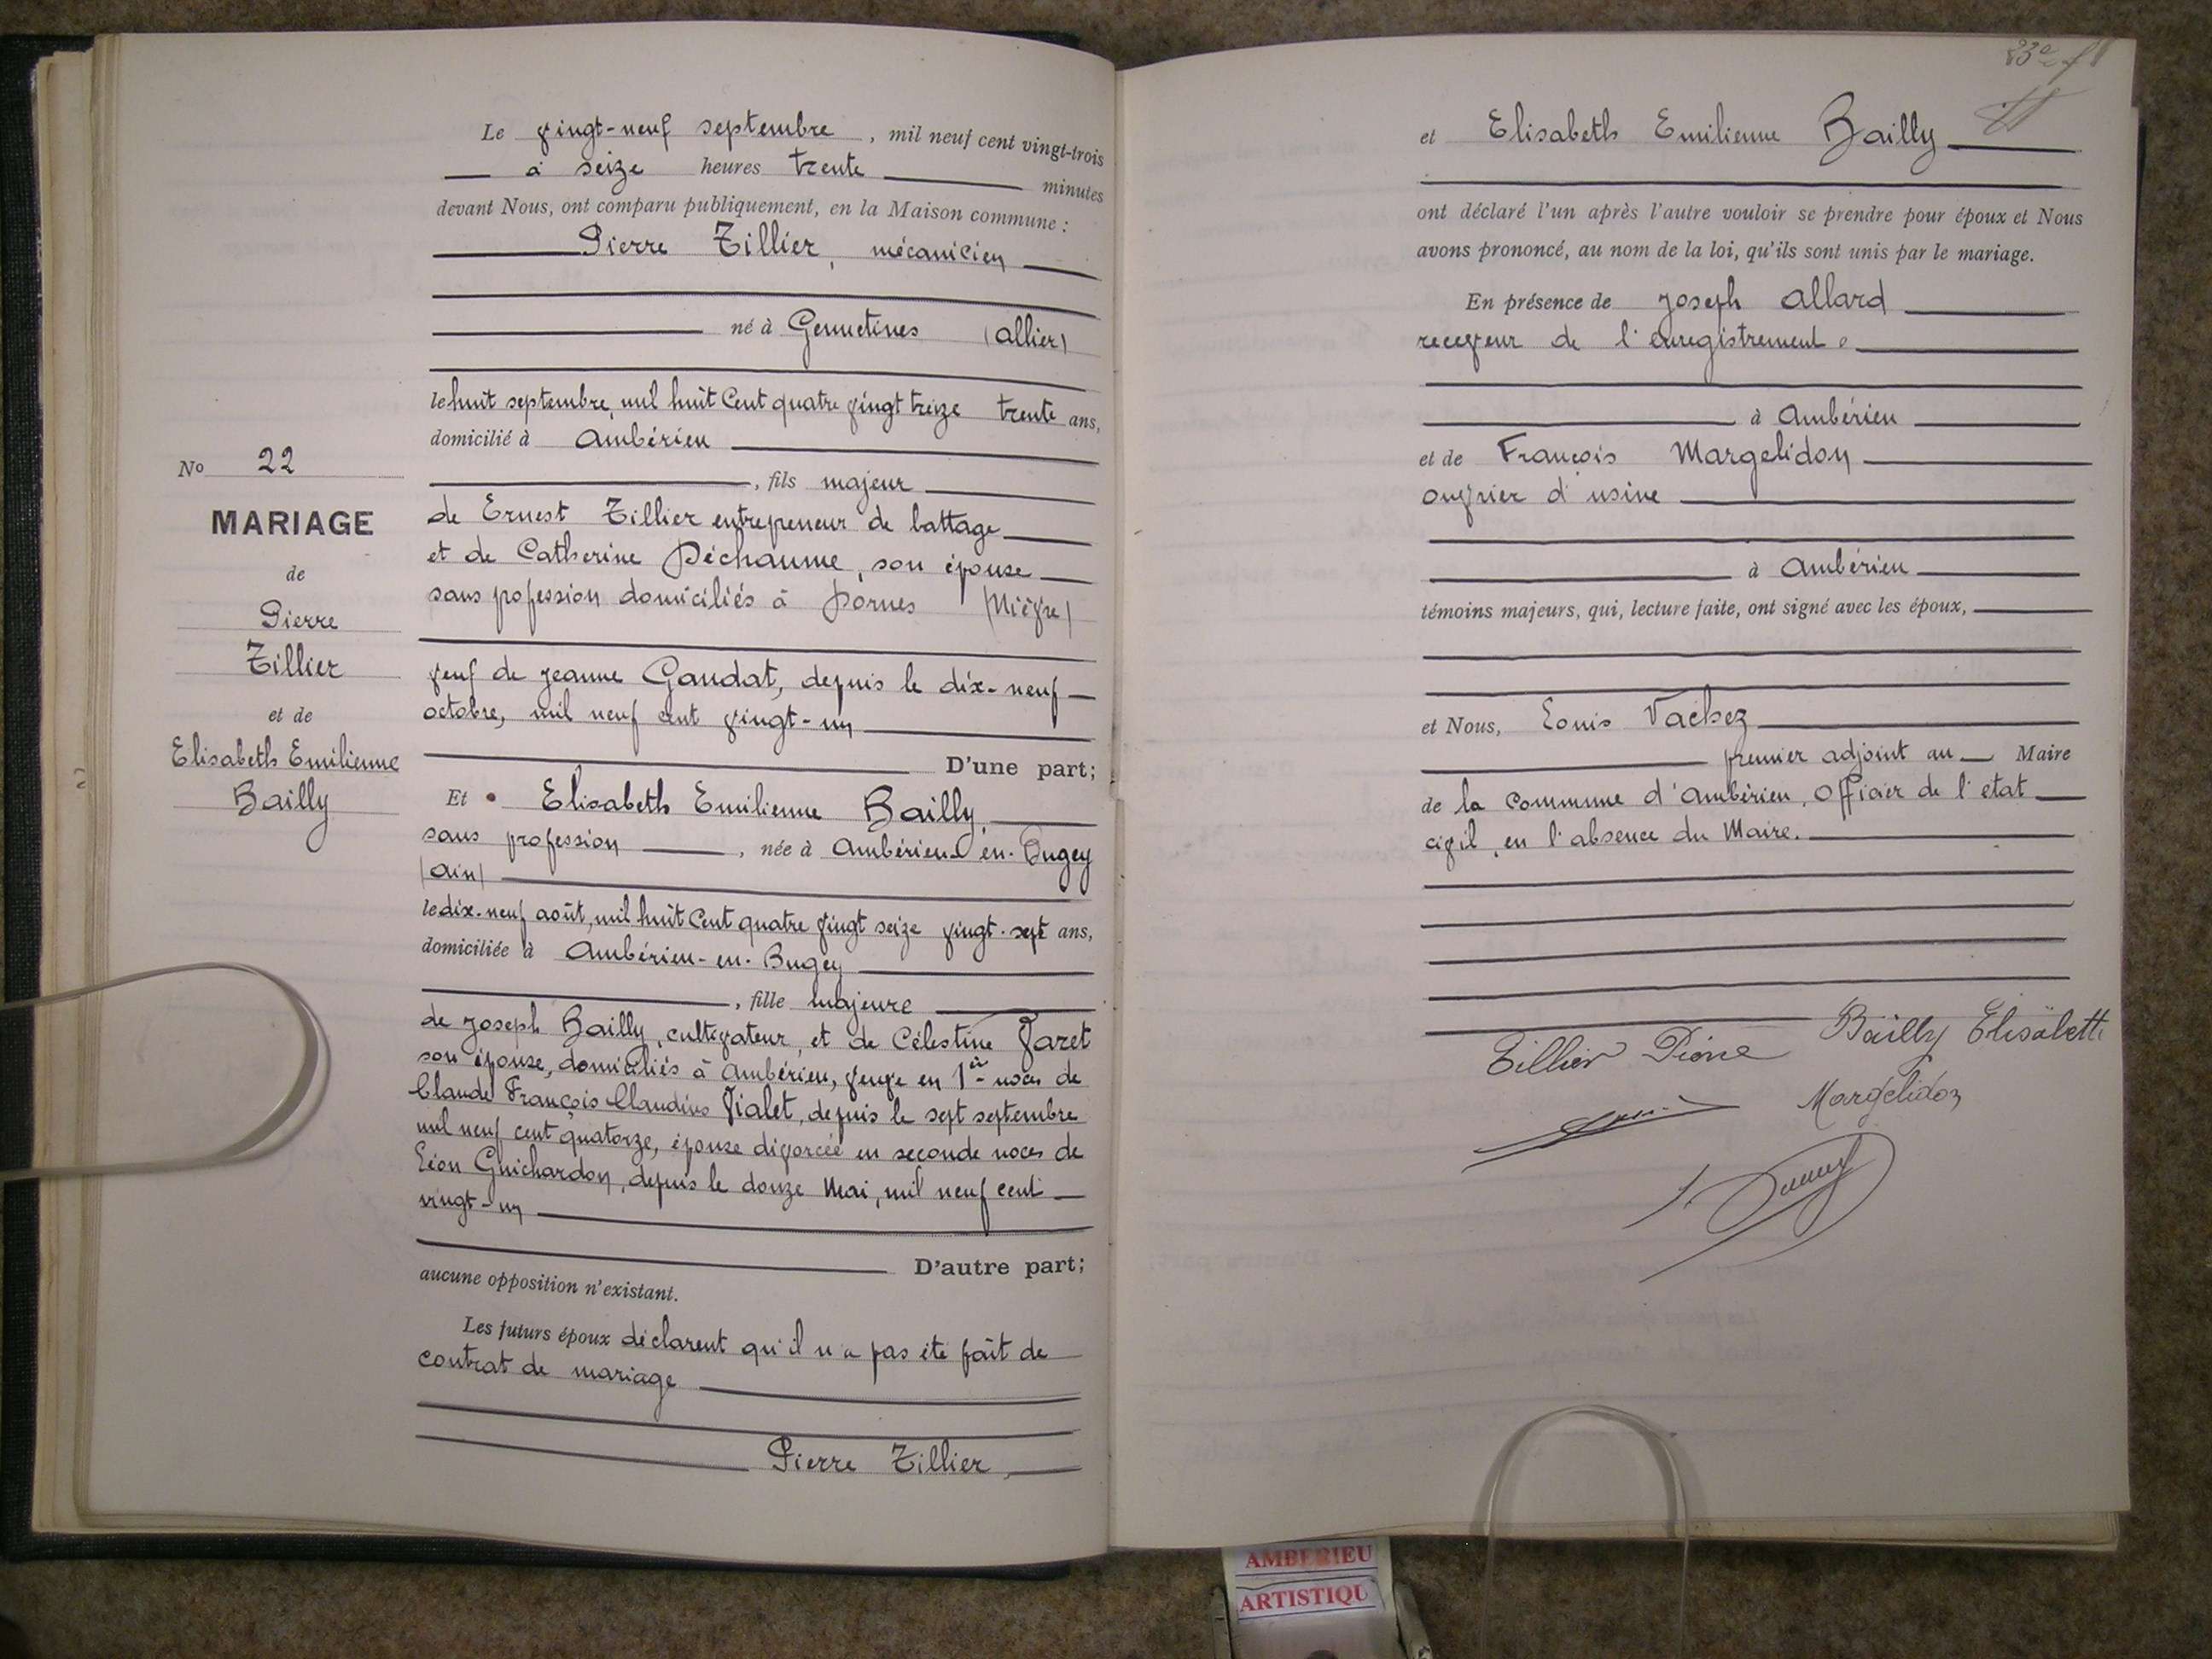 Le vingt-neuf septembre, mil neuf cent vingt-trois
à seize heures trente minutes
devant Nous, ont comparu publiquement, en la Maison commune :
Pierre Tillier, mécanicien
né à Gennetines (Allier)
le huit septembre, mil huit cent quatre vingt treize trente ans,
domicilié à Ambérieu
, fils majeur
de Ernest Tillier entrepreneur de battage
et de Catherine Déchaume, son épouse
sans profession domiciliés à Dornes (Nièvre)
veuf de Jeanne Gaudat, depuis le dix-neuf
octobre, mil neuf cent vingt-un
D'une part;
Et Elisabeth Emilienne Bailly,
sans profession, née à Ambérieu-en-Bugey
(Ain)
le dix-neuf août, mil huit cent quatre vingt seize vingt-sept ans,
domiciliée à Ambérieu-en-Bugey
, fille majeure
de Joseph Bailly, cultivateur, et de Célestine Varet
son épouse, domiciliés à Ambérieu, veuve en 1ères noces de
Claude François Claudius Vialet, depuis le sept septembre
mil neuf cent quatorze, épouse divorcée en seconde noces de
Léon Guichardon, depuis le douze Mai, mil neuf cent
vingt-un
D'autre part;
aucune opposition n'existant.
Les futurs époux déclarent qu'il n'a pas été fait de
contrat de mariage
Pierre Tillier,
No 22
MARIAGE
de
Pierre
Tillier
et de
Elisabeth Emilienne
Bailly
83e f
et Elisabeth Emilienne Bailly
ont déclaré l'un après l'autre vouloir se prendre pour époux et Nous
avons prononcé, au nom de la loi, qu'ils sont unis par le mariage.
En présence de Joseph Allard
receveur de l'enregistrement
à Ambérieu
et de François Margelidon
ouvrier d'usine
à Ambérieu
témoins majeurs, qui, lecture faite, ont signé avec les époux,
et Nous, Louis Vachez
premier adjoint au Maire
de la Commune d'Ambérieu, Officier de l'état
civil, en l'absence du Maire.
Tillier Pierre
Bailly Elisabeth
Margelidon
AMBERIEU
ARTISTIQU